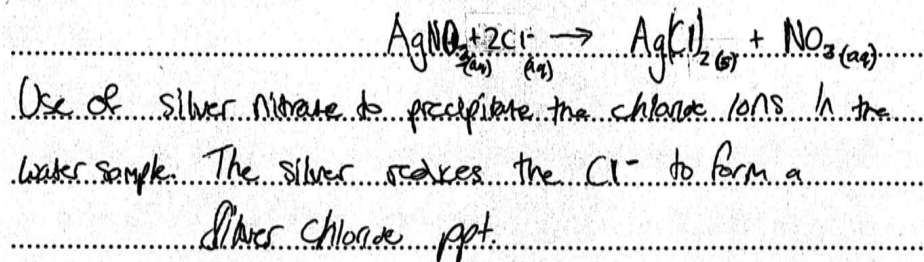 AgNO₃(aq) + 2Cl⁻(aq) → Ag(Cl)₂(s) + NO₃(aq)
Use of silver nitrate to precipitate the chloride ions in the
water sample. The silver reduces the Cl⁻ to form a
silver chloride ppt.